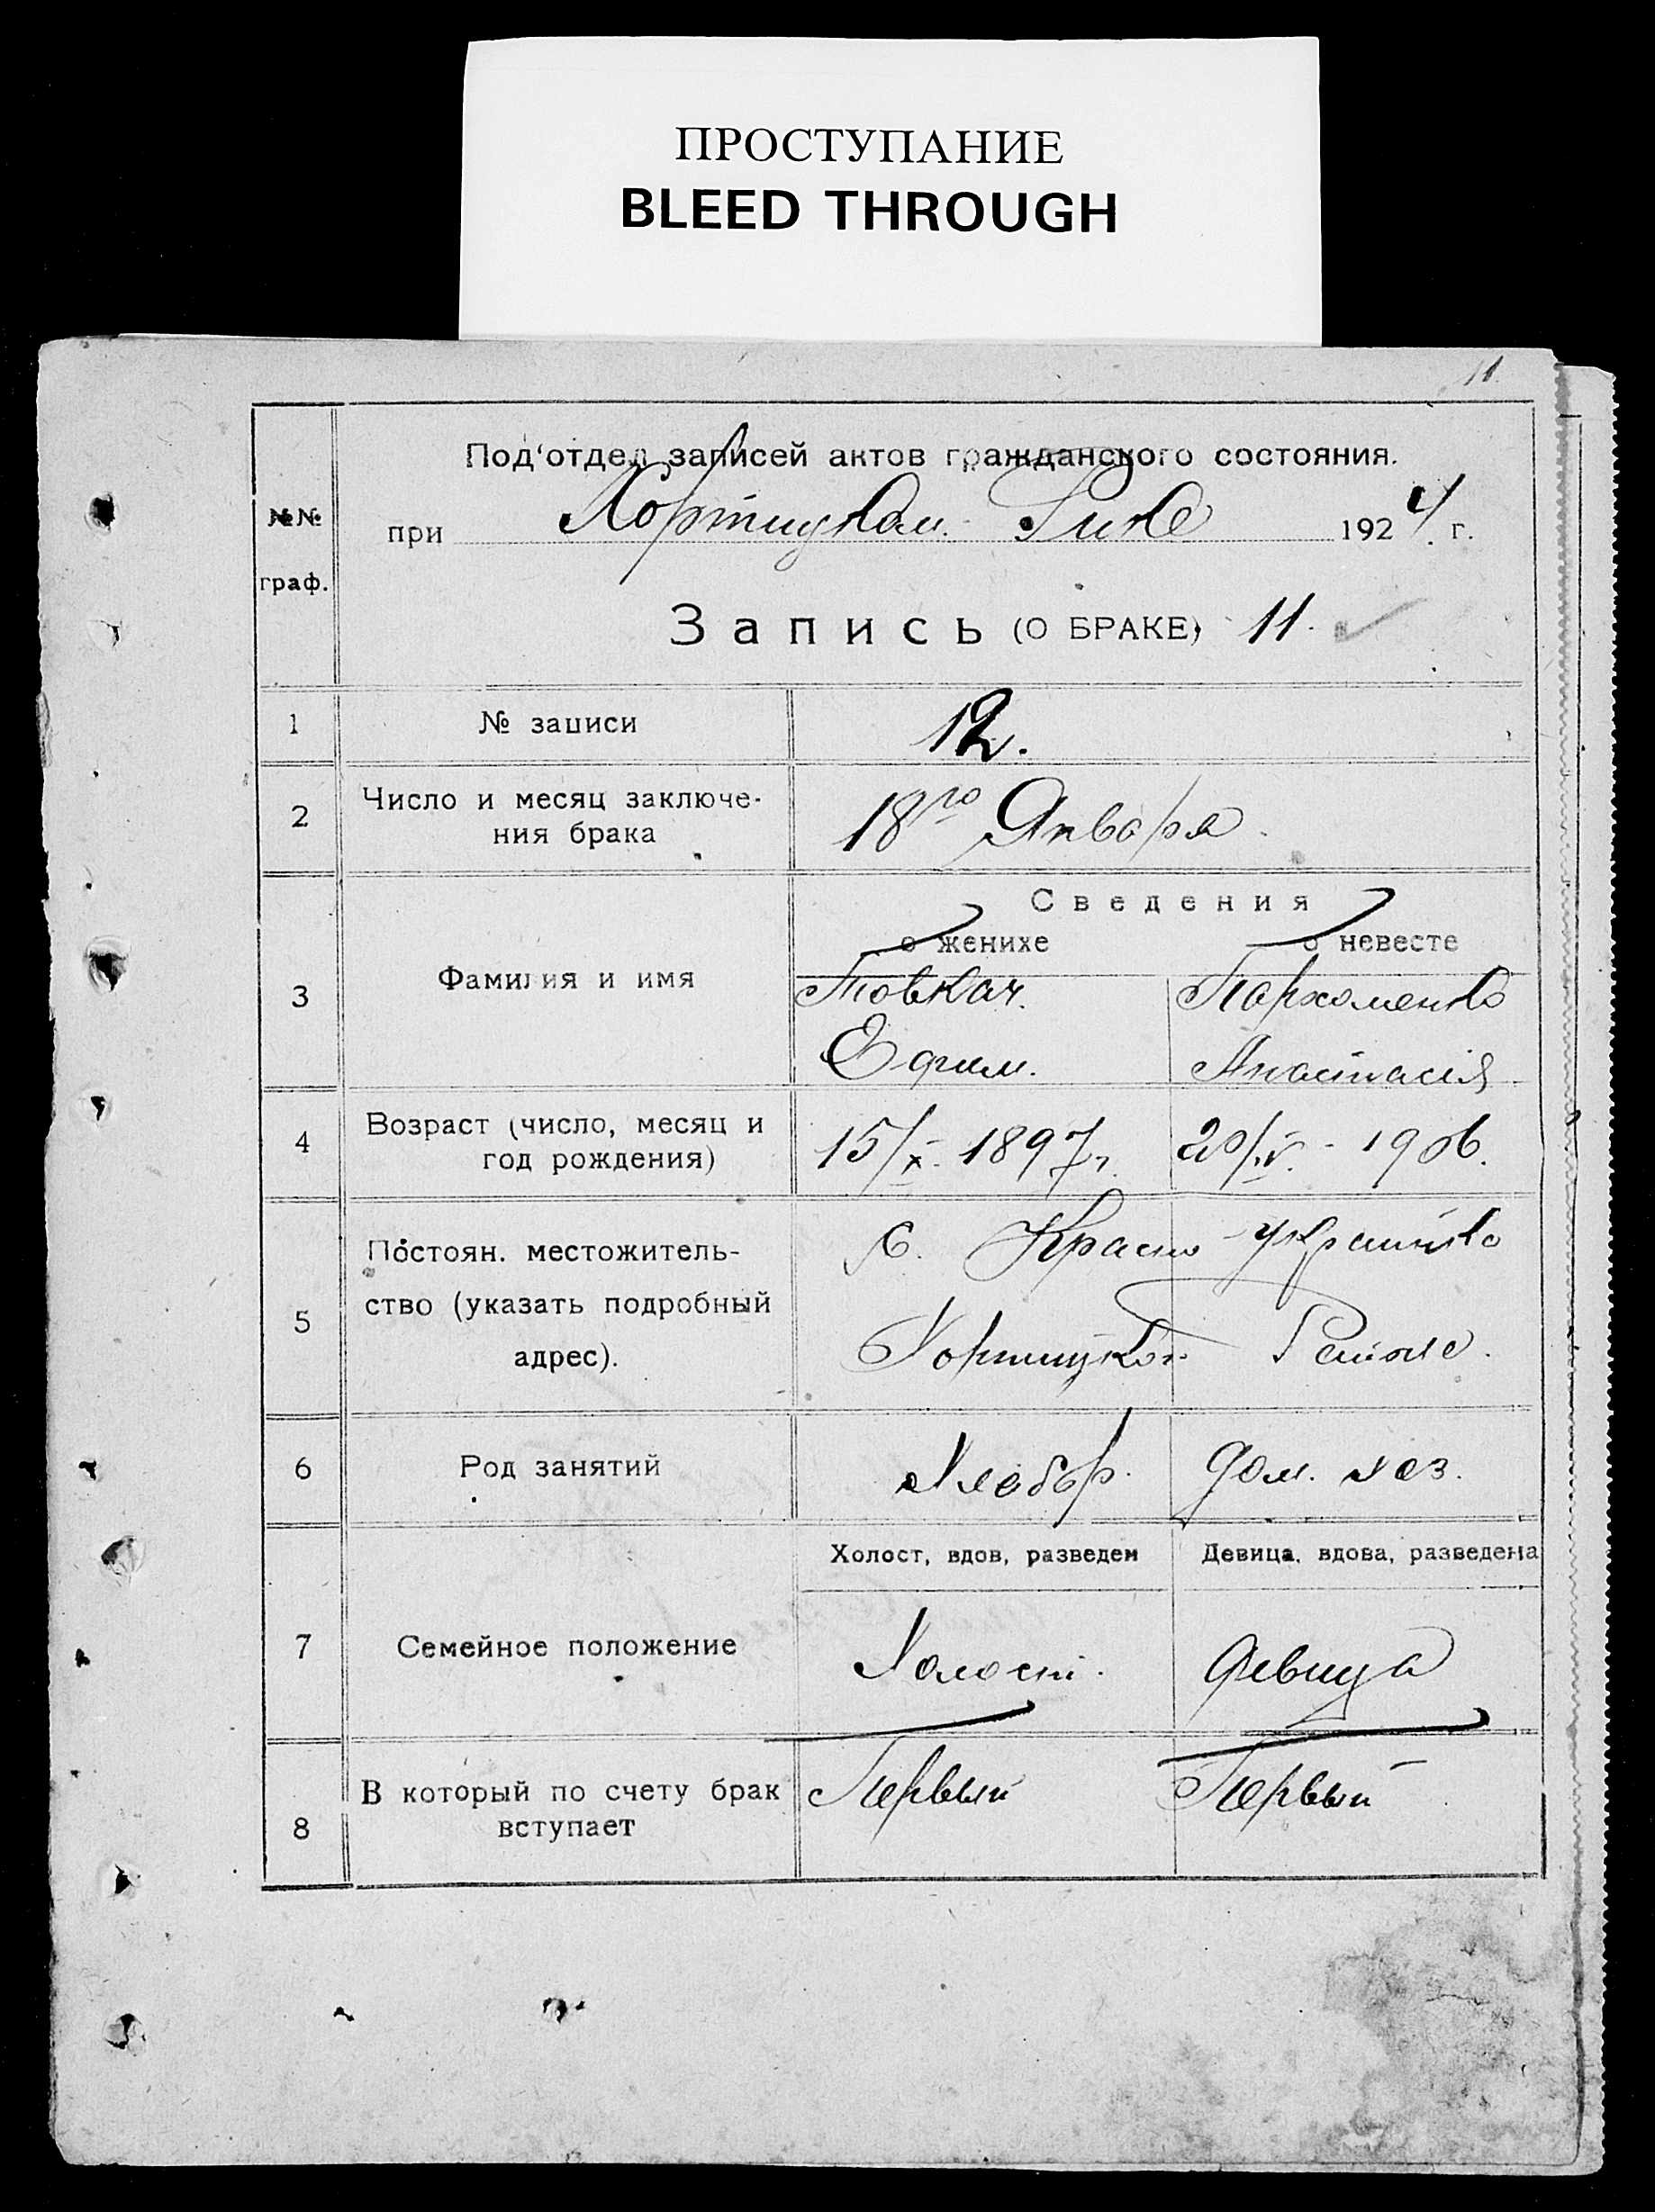 ПРОСТУПАНИЕ
BLEED THROUGH
11.
Под'отдел записей актов гражданского состояния.
№№ граф.
при Хортицком Рике 1924 г.
Запись (О БРАКЕ) 11.
1 № записи 12.
2 Число и месяц заключе-
ния брака 18го Января.
Сведения
о женихе о невесте
3 Фамилия и имя Товкач. Пархоменко
Ефим. Анастасія
4 Возраст (число, месяц и
год рождения) 15/X. 1897 г. 20/IV. - 1906.
5 Постоян. местожитель-
ство (указать подробный
адрес).
с. Красно Украинка
Хортицкого Района.
6 Род занятий Хлебор. Дом. хоз.
Холост, вдов, разведен Девица, вдова, разведена
7 Семейное положение Холост. Девица
8 В который по счету брак
вступает Первый Первый